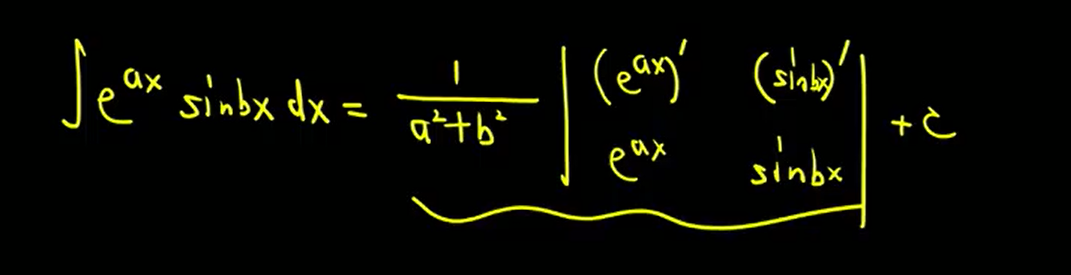 ∫e^{ax} sinbx dx = \frac{1}{a²+b²} \begin{vmatrix} (e^{ax})' & (sinbx)' \\ e^{ax} & sinbx \end{vmatrix} + c